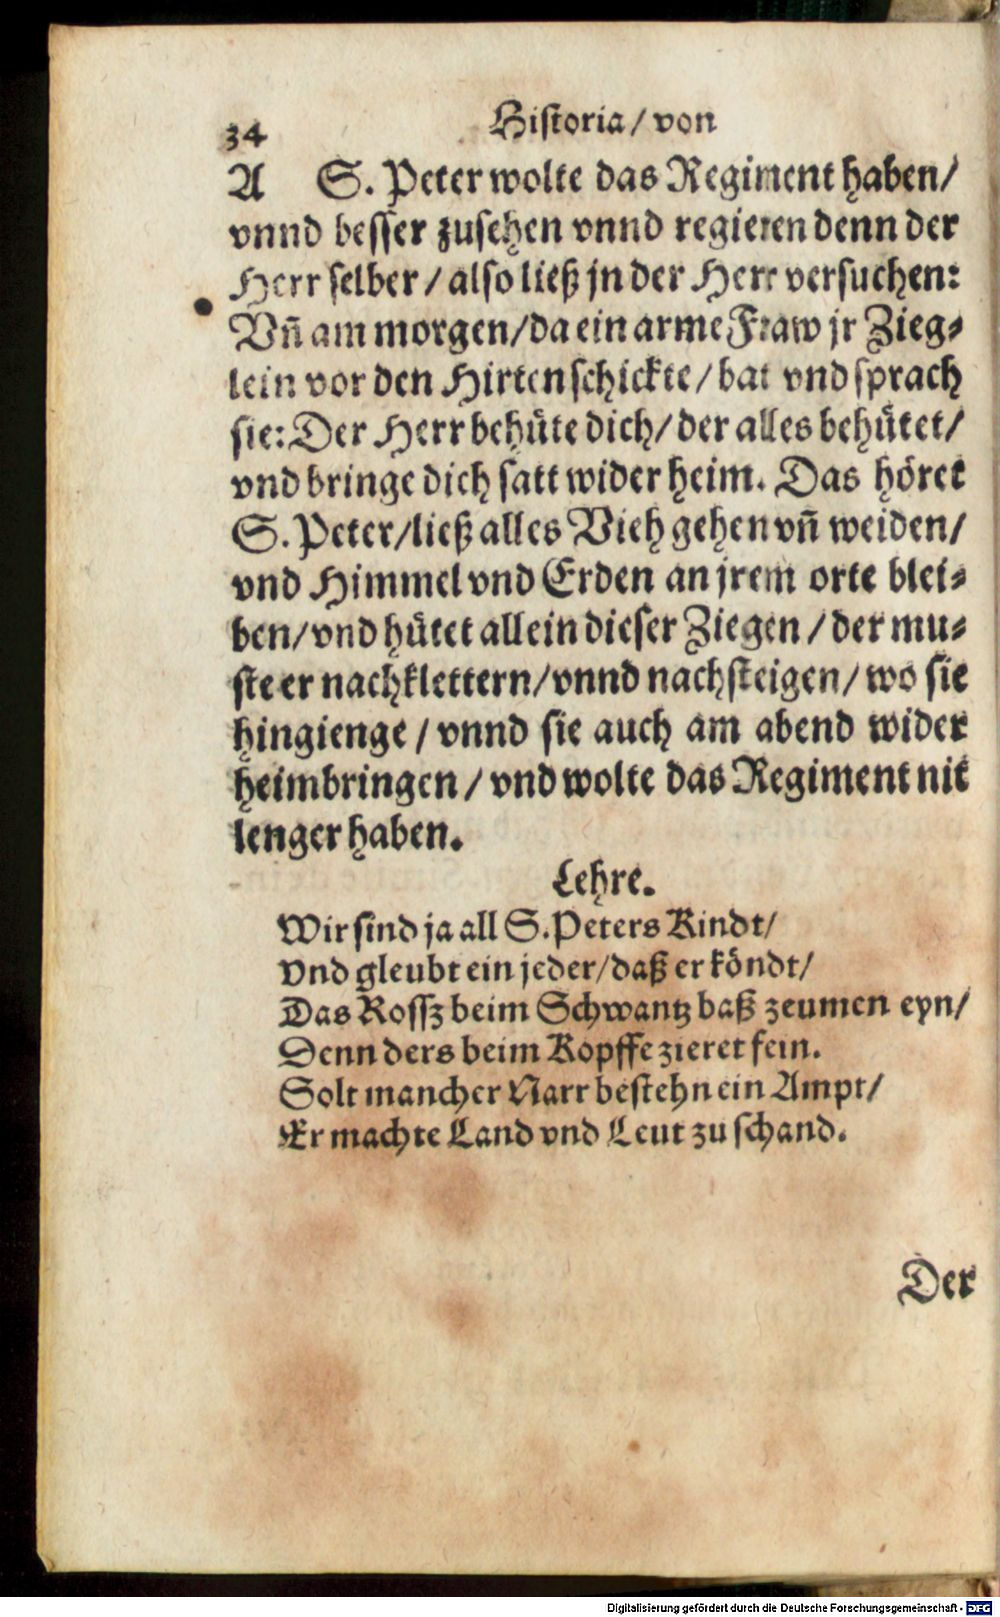 34 Historia / von
A S. Peter wolte das Regiment haben /
vnnd besser zusehen vnnd regieren denn der
Herr selber / also ließ jn der Herr versuchen:
Vñ am morgen / da ein arme Fraw jr Zieg⸗
lein vor den Hirten schickte / bat vnd sprach
sie: Der Herr behüte dich / der alles behütet /
vnd bringe dich satt wider heim. Das höret
S. Peter / ließ alles Vieh gehen vñ weiden /
vnd Himmel vnd Erden an jrem orte blei⸗
ben / vnd hütet allein dieser Ziegen / der mu⸗
ste er nachklettern / vnnd nachsteigen / wo sie
hingienge / vnnd sie auch am abend wider
heimbringen / vnd wolte das Regiment nit
lenger haben.
Lehre.
Wir sind ja all S. Peters Kindt /
Vnd gleubt ein jeder / daß er köndt /
Das Rossz beim Schwantz baß zeumen eyn /
Denn ders beim Kopffe zieret fein.
Solt mancher Narr bestehn ein Ampt /
Er machte Land vnd Leut zu schand.
Der
Digitalisierung gefördert durch die Deutsche Forschungsgemeinschaft - DFG